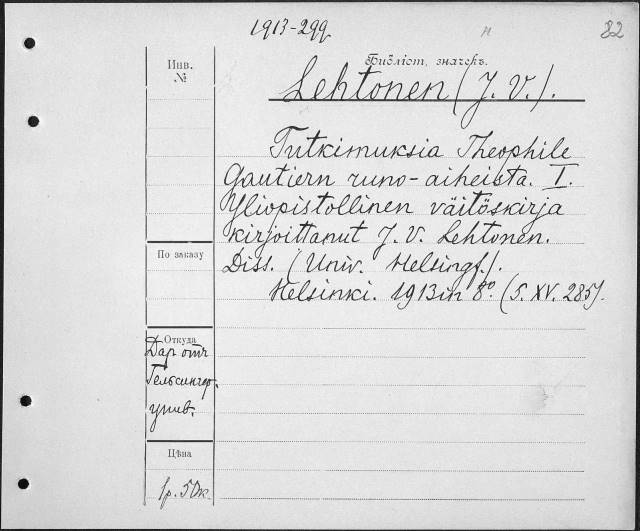 1913-299
82
Библіот. значекъ.
Инв.
№
Lehtonen (J. V.).
Tutkimuksia Theophile
Gautiern runo-aiheista. I.
Yliopistollinen väitöskirja
kirjoittanut J. V. Lehtonen.
По заказу
Diss. (Univ. Helsingf.).
Helsinki. 1913 in 8° (5. XV. 285).
Откуда
Дар отъ
Гельсингф.
унив.
Цѣна
1р. 50к.